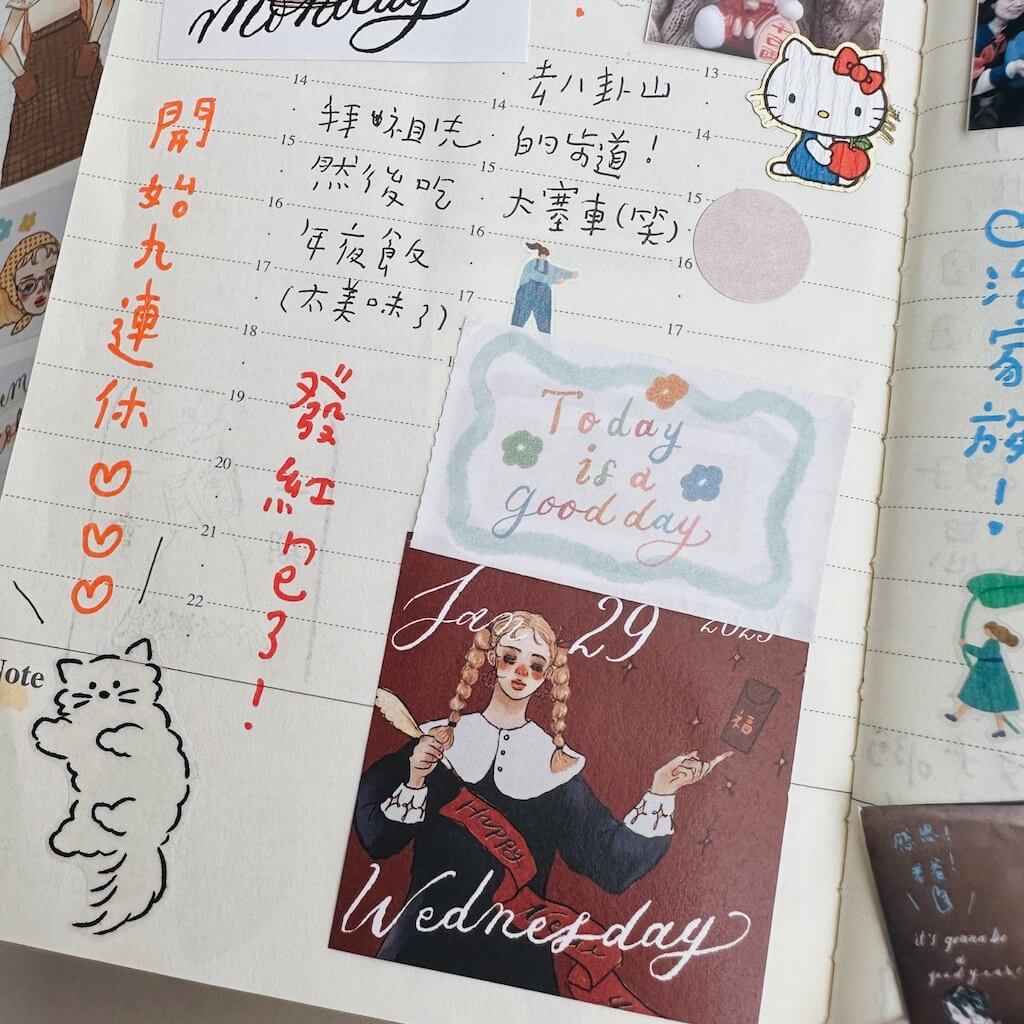 Monday
開始九連休
拜祖先
然後吃
年夜飯
(太美味了)
發紅包了!
去八卦山
的步道!
大塞車(笑)
Today
is a
good day
Jan 29 2025
福
Happy
Wednesday
14
15
16
17
18
19
20
21
22
14
15
16
17
13
14
15
16
17
Note
治家族!
感恩!
it's gonna be
a
good year